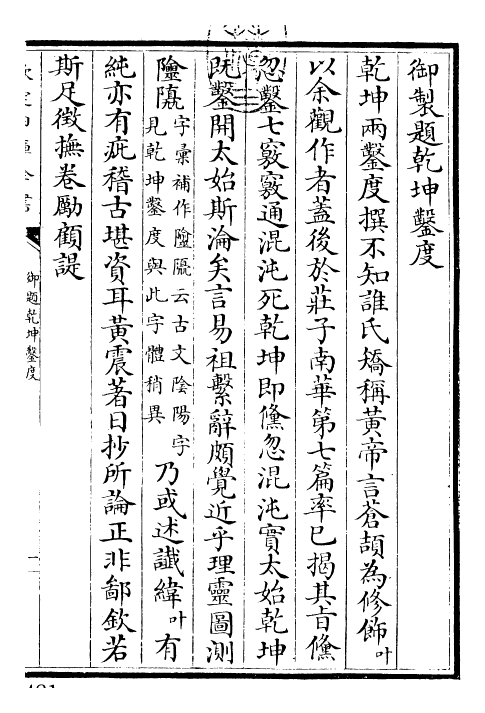 御製題乾坤鑿度
乾坤兩鑿度撰不知誰氏矯稱黃帝言蒼頡為修飾叶
以余觀作者蓋後於莊子南華第七篇率已揭其旨儵
忽鑿七竅竅通混沌死乾坤即儵忽混沌實太始乾坤
既鑿開太始斯淪矣言易祖繫辭頗覺近乎理靈圖測
字彙補作云古文陰陽字
見乾坤鑿度與此字體稍異
乃或述讖緯叶有
純亦有疵稽古堪資耳黃震著日抄所論正非鄙欽若
斯足徵撫卷勵顧諟
御題乾坤鑿度
一